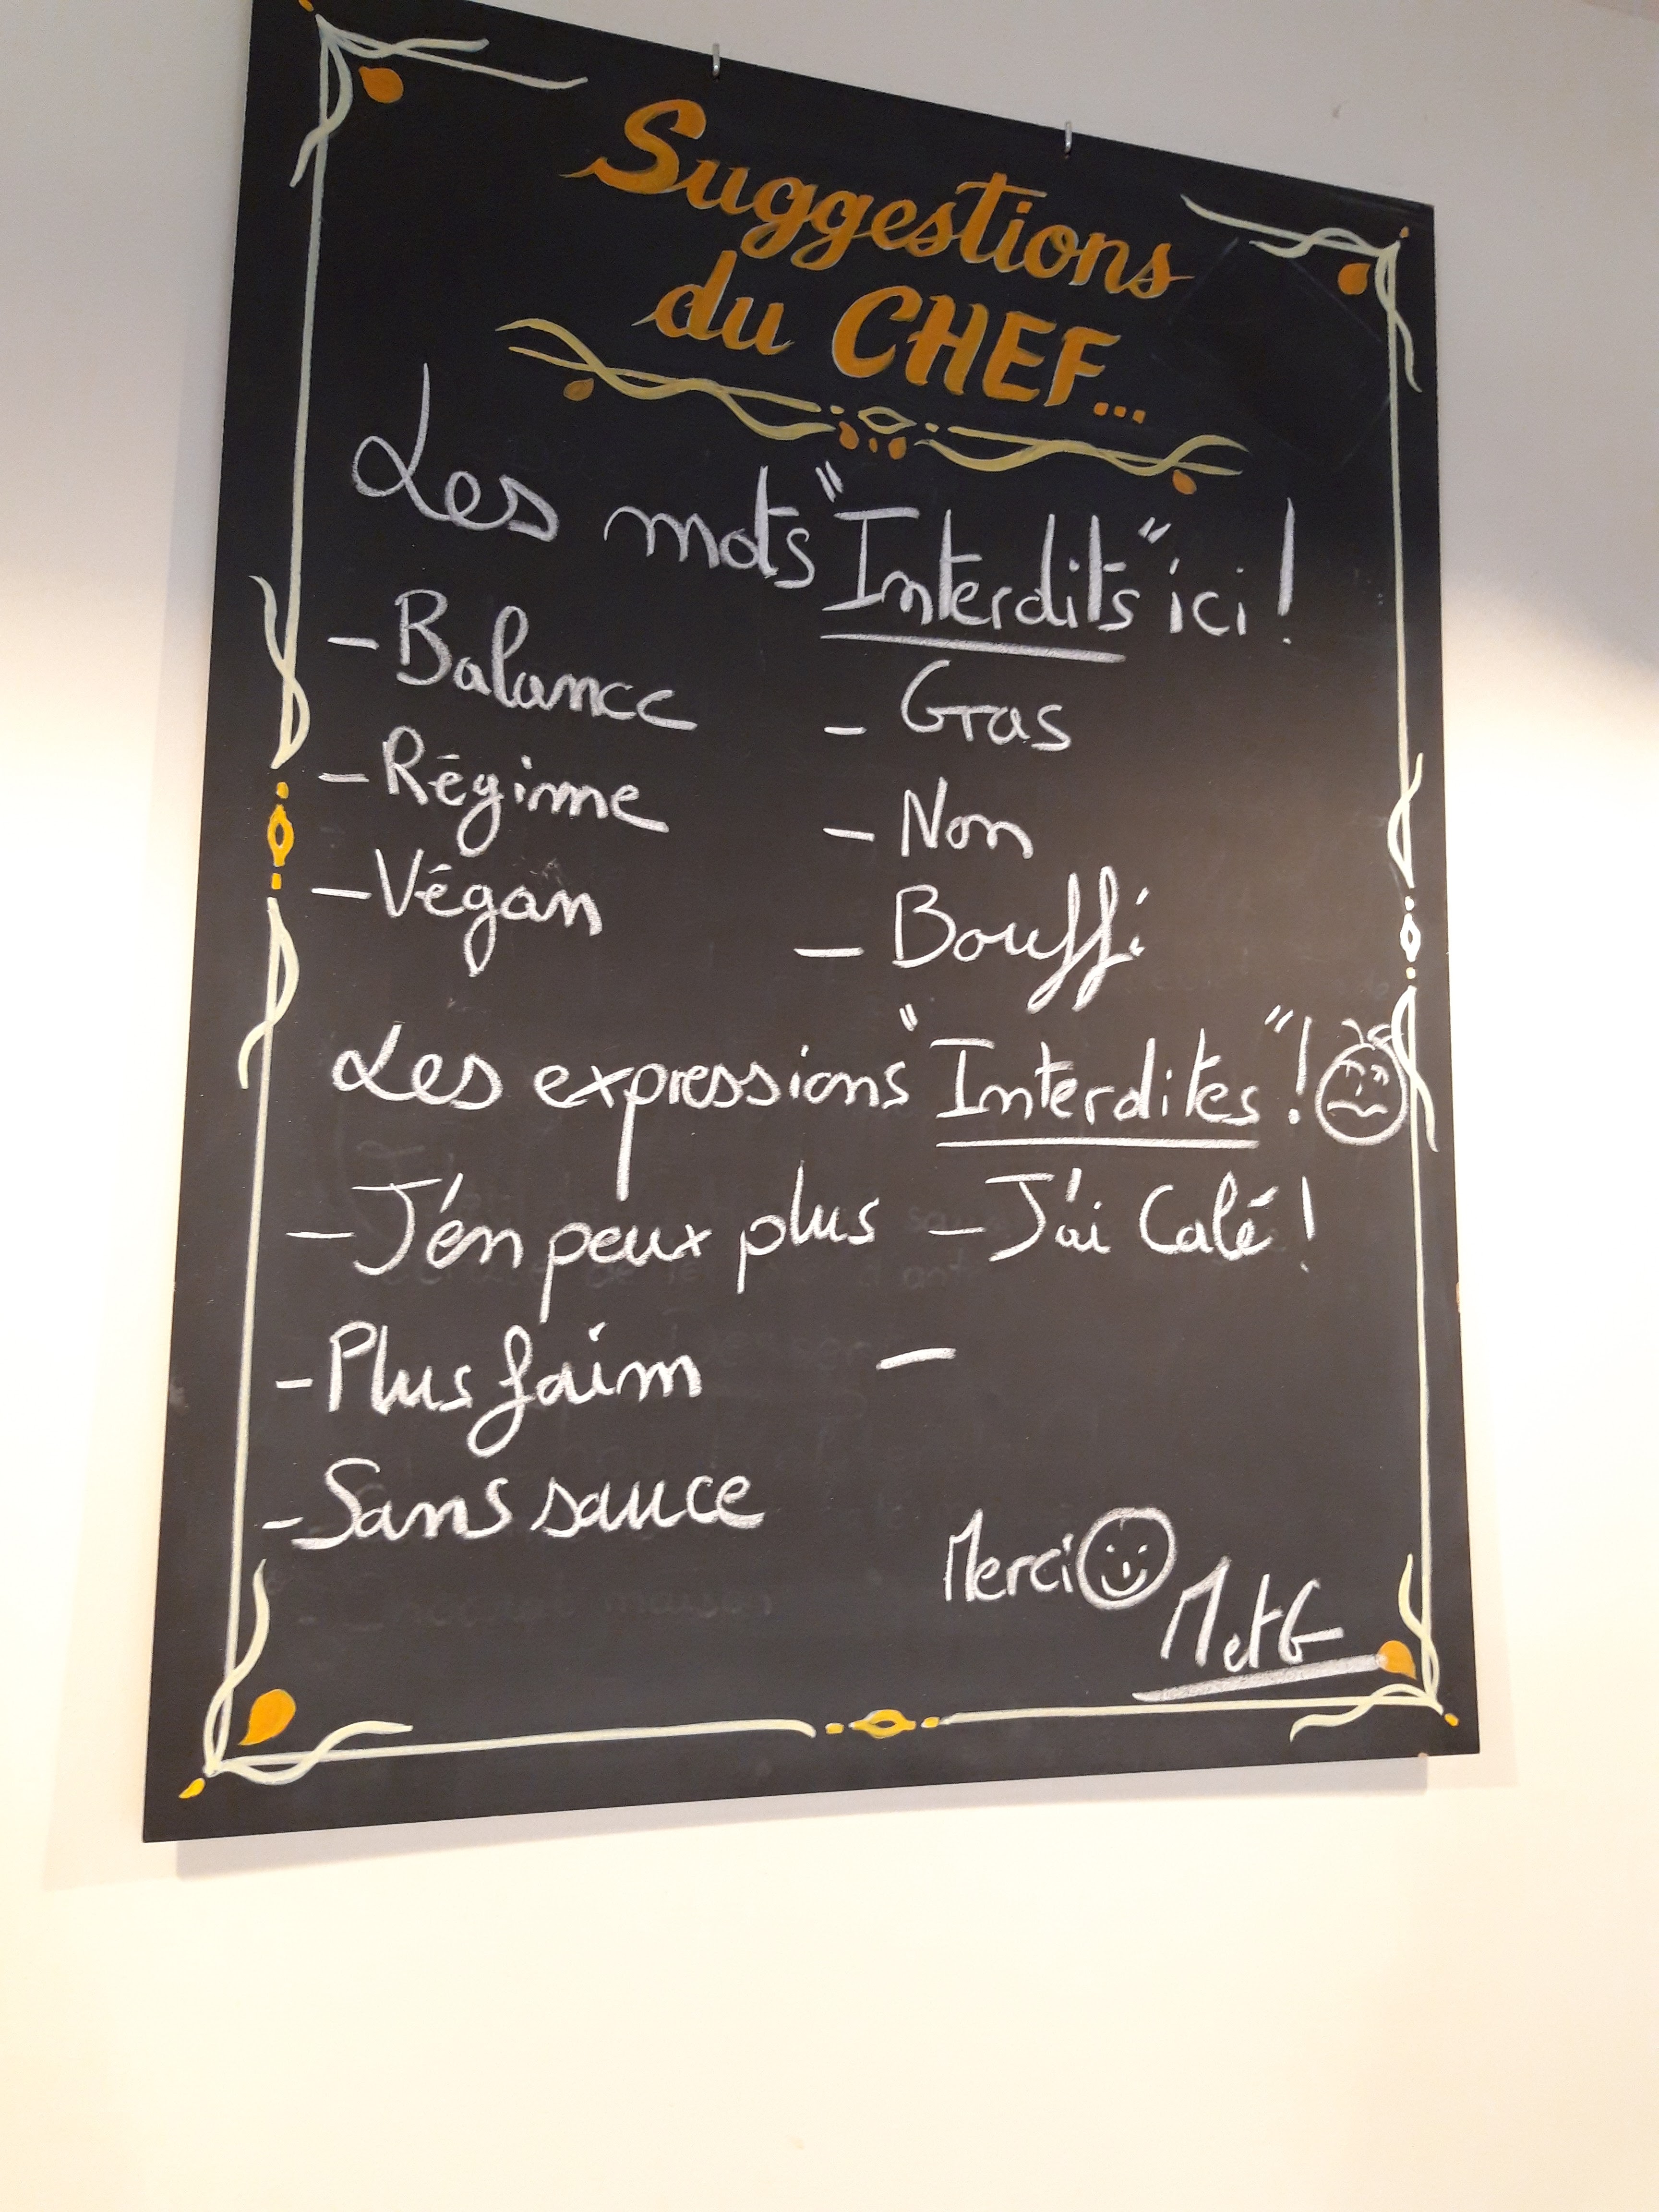 Suggestions
du CHEF...
Les mots "Interdits" ici !
- Balance
- Gras
- Régime
- Non
- Végan
- Bouffi
Les expressions "Interdites" !
- J'en peux plus
- J'ai Calé !
- Plus faim
-
- Sans sauce
Merci
M et G